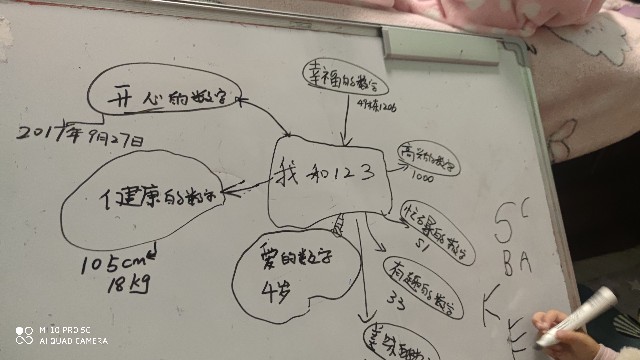 开心的数字
2017年9月27日
幸福的数字
49栋1206
我和123
高兴的数字
1000
健康的数字
105cm
18kg
爱的数字
4岁
51
有趣的数字
33
SC
BA
K
E
MI 10 PRO 5G
AI QUAD CAMERA